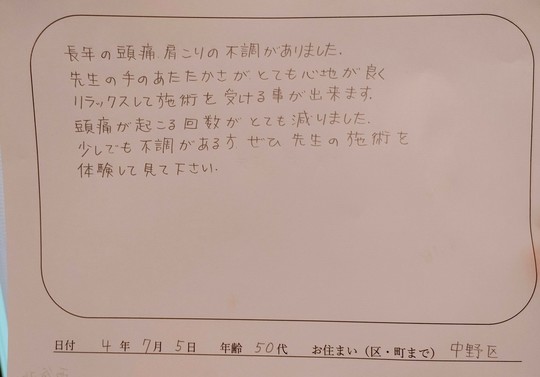 長年の頭痛 肩こりの不調がありました.
先生の手のあたたかさがとても心地が良く
リラックスして施術を受ける事が出来ます.
頭痛が起こる回数がとても減りました.
少しでも不調がある方 ぜひ先生の施術を
体験して見て下さい.
日付 4年 7月 5日 年齢 50代 お住まい（区・町まで） 中野区